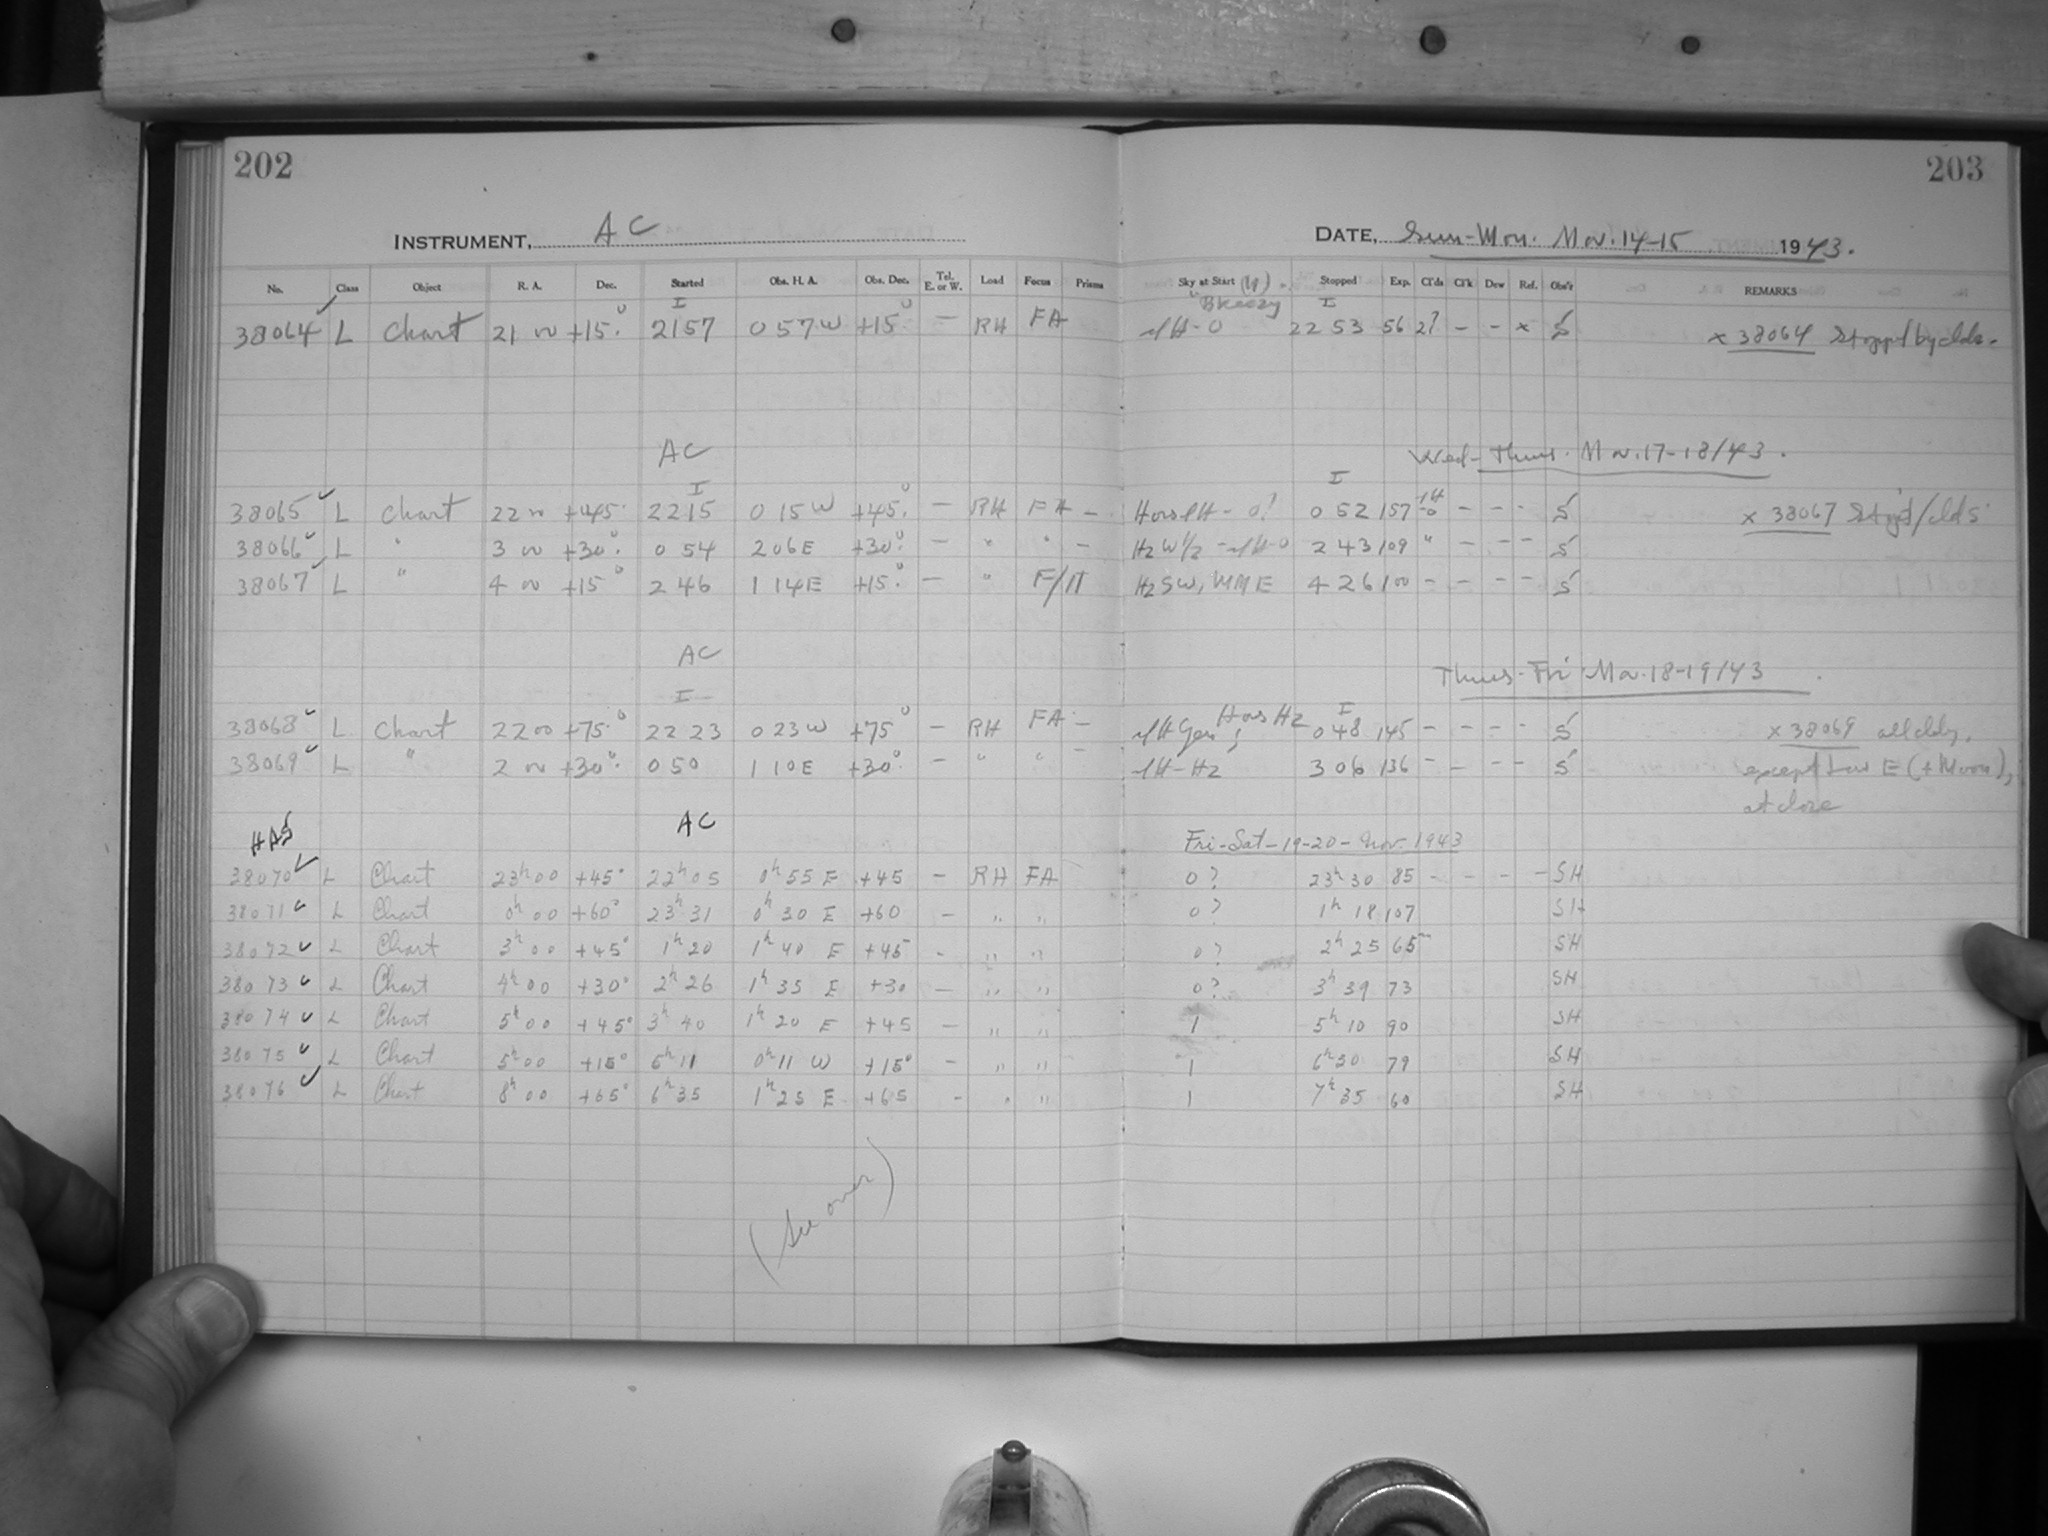 202
203
INSTRUMENT, AC
DATE, Sun-Mon. Nov. 14-15 1943.
No. Class Object R. A. Dec. Started Obs. H. A. Obs. Dec. Tel. E. or W. Load Focus Prisms Sky at Start Stopped Exp. Cl'ds Cl'k Dew Ref. Obs'r REMARKS
Breezy
38064 L Chart 21 00 +15° 2157 0 57 W +15° — RH FA 22 53 56 2? - - x S x 38064 Stopp'd by clds.
AC Wed-Thurs. Nov. 17-18/43.
38065 L Chart 22 00 +45° 2215 0 15 W +45° — RH FA — 0 52 157 - - - S x 38067 Stop'd/clds
38066 L " 3 00 +30° 0 54 2 06 E +30° — " " — 2 43 109 " - - - S
38067 L " 4 00 +15° 2 46 1 14 E +15° — " Hz SW, 4 26 100 - - - - S
AC Thurs-Fri Nov. 18-19/43
38068 L Chart 22 00 +75° 22 23 0 23 W +75° — RH FA — Hz 0 48 145 - - - - S x 38069 all cldy,
38069 L " 2 00 +30° 0 50 1 10 E +30° — " " — 3 06 136 - - - - S except low E (+Moon),
at close
HAS AC Fri-Sat-19-20-Nov. 1943
38070 L Chart 23h 00 +45° 22h 05 0h 55 E +45 — RH FA 0? 23h 30 85 - - - - SH
38071 L Chart 0h 00 +60° 23h 31 0h 30 E +60 — " " 0? 1h 18 107 SH
38072 L Chart 3h 00 +45° 1h 20 1h 40 E +45 - " " 0? 2h 25 65 SH
38073 L Chart 4h 00 +30° 2h 26 1h 35 E +30 — " " 0? 3h 39 73 SH
38074 L Chart 5h 00 +45° 3h 40 1h 20 E +45 — " " 1 5h 10 90 SH
38075 L Chart 5h 00 +15° 5h 11 0h 11 W +15° — " " 1 6h 30 79 SH
38076 L Chart 8h 00 +65° 6h 35 1h 25 E +65 - " " 1 7h 35 60 SH
(See over)